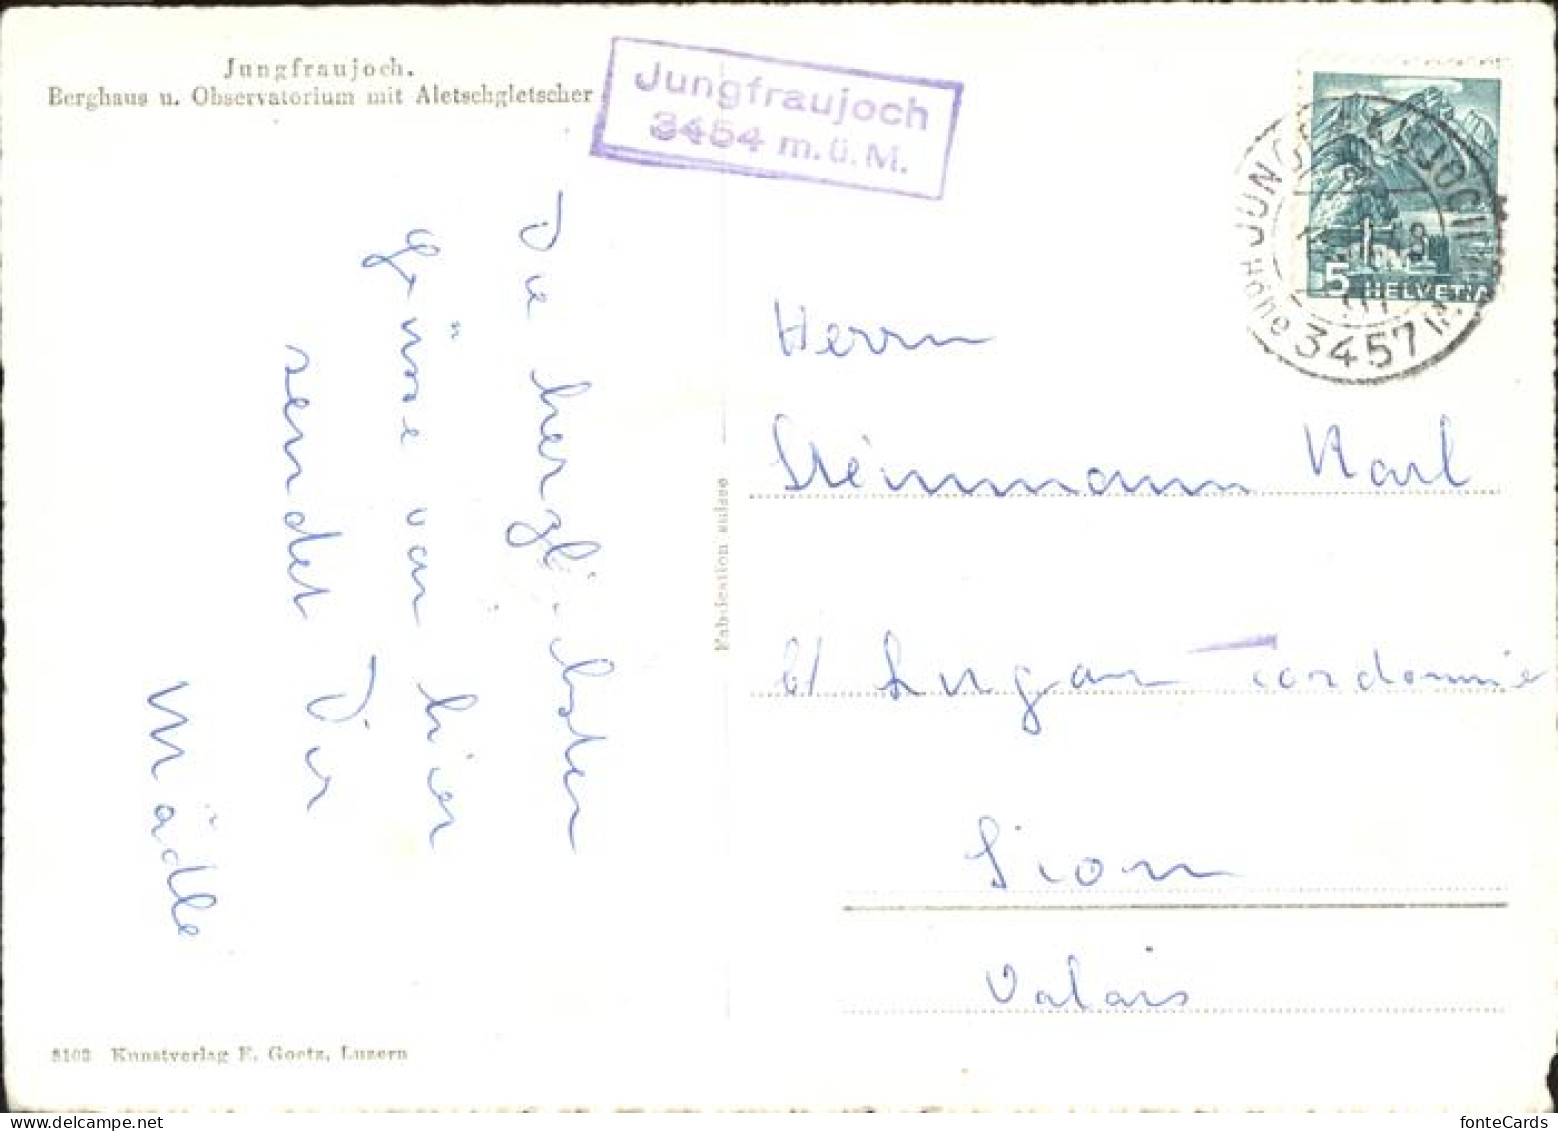 Jungfraujoch.
Berghaus u. Observatorium mit Aletschgletscher
Jungfraujoch
3454 m.ü.M.
JUNGFRAUJOCH
Höhe 3457 m
5 HELVETIA
Die herzlichsten
Grüsse von hier
sendet Dir
Mädle
Fabrication suisse
Herrn
Steinmann Karl
b/ Lugan cordonnie
Sion
Valais
8103 Kunstverlag E. Goetz, Luzern
fonteCards